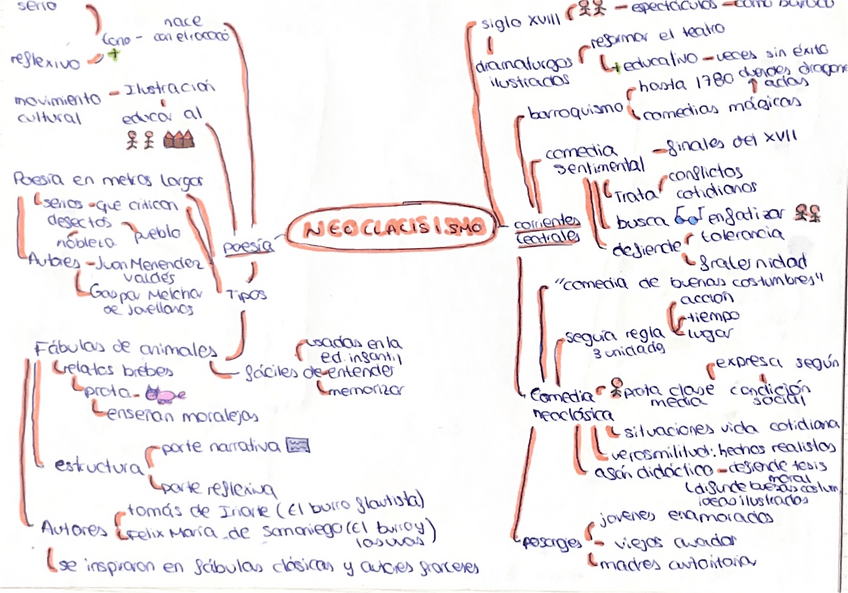 serio
nace
tono - con el rococó
reflexivo +
movimiento - Ilustración
cultural
educar al
Poesía en metros largos
serios - que critican
desectos pueblo
nobleza
Autores - Juan Menendez
valdés
Gaspar Melchor
de jovellanos
poesía
Tipos
Fábulas de animales
relatos brebes
prota -
enseñan moralejas
fáciles de entender
usadas en la
ed. infantil
memorizar
estructura
parte narrativa
parte reflexiva
Autores
tomás de Iriarte (El burro flautista)
Felix María de Samaniego (El burro y
las uvas)
se inspiraron en fábulas clásicas y autores franceses
NEOCLACISISMO
corrientes
teatrales
siglo XVIII - espectáculos - como barroco
dramaturgos
ilustrados
reformar el teatro
+ educativo - veces sin éxito
barroquismo
hasta 1780 duendes dragones
actos
comedias mágicas
comedia - finales del XVII
sentimental
Trata conflictos
cotidianos
busca
defiende tolerancia
fraternidad
"comedia de buenas costumbres"
seguía regla
3 unidades
acción
tiempo
lugar
Comedia
neoclásica
prota clase
media
expresa según
condición
social
situaciones vida cotidiana
verosmilitud: hechos realistas
afán didáctico - defiende tesis
moral
ideas ilustrados
pesojes
jovenes enamorados
- viejos
madres autoritaria